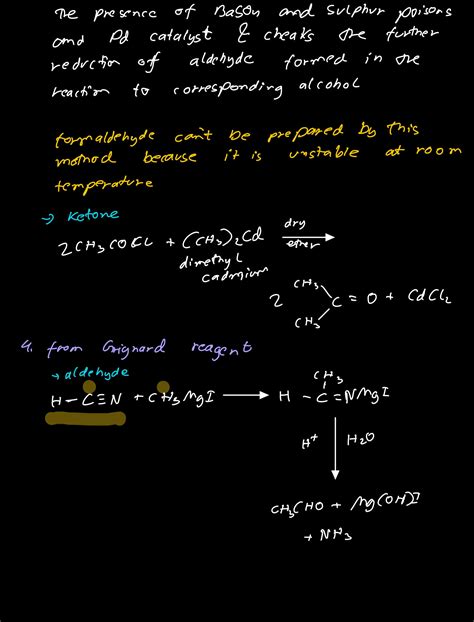 The presence of BaSO4 and sulphur poisons
and Pd catalyst & cheaks the further
reduction of aldehyde formed in the
reaction to corresponding alcohol
formaldehyde can't be prepared by this
method because it is unstable at room
temperature
→ Ketone
2CH3COCl + (CH3)2Cd dry ether →
dimethyl
cadmium
2 CH3 CH3 C = O + CdCl2
4. from Grignard reagent
→ aldehyde
H - C ≡ N + CH3MgI → H - C = NMgI
CH3
H+ H2O
CH3CHO + Mg(OH)I
+ NH3